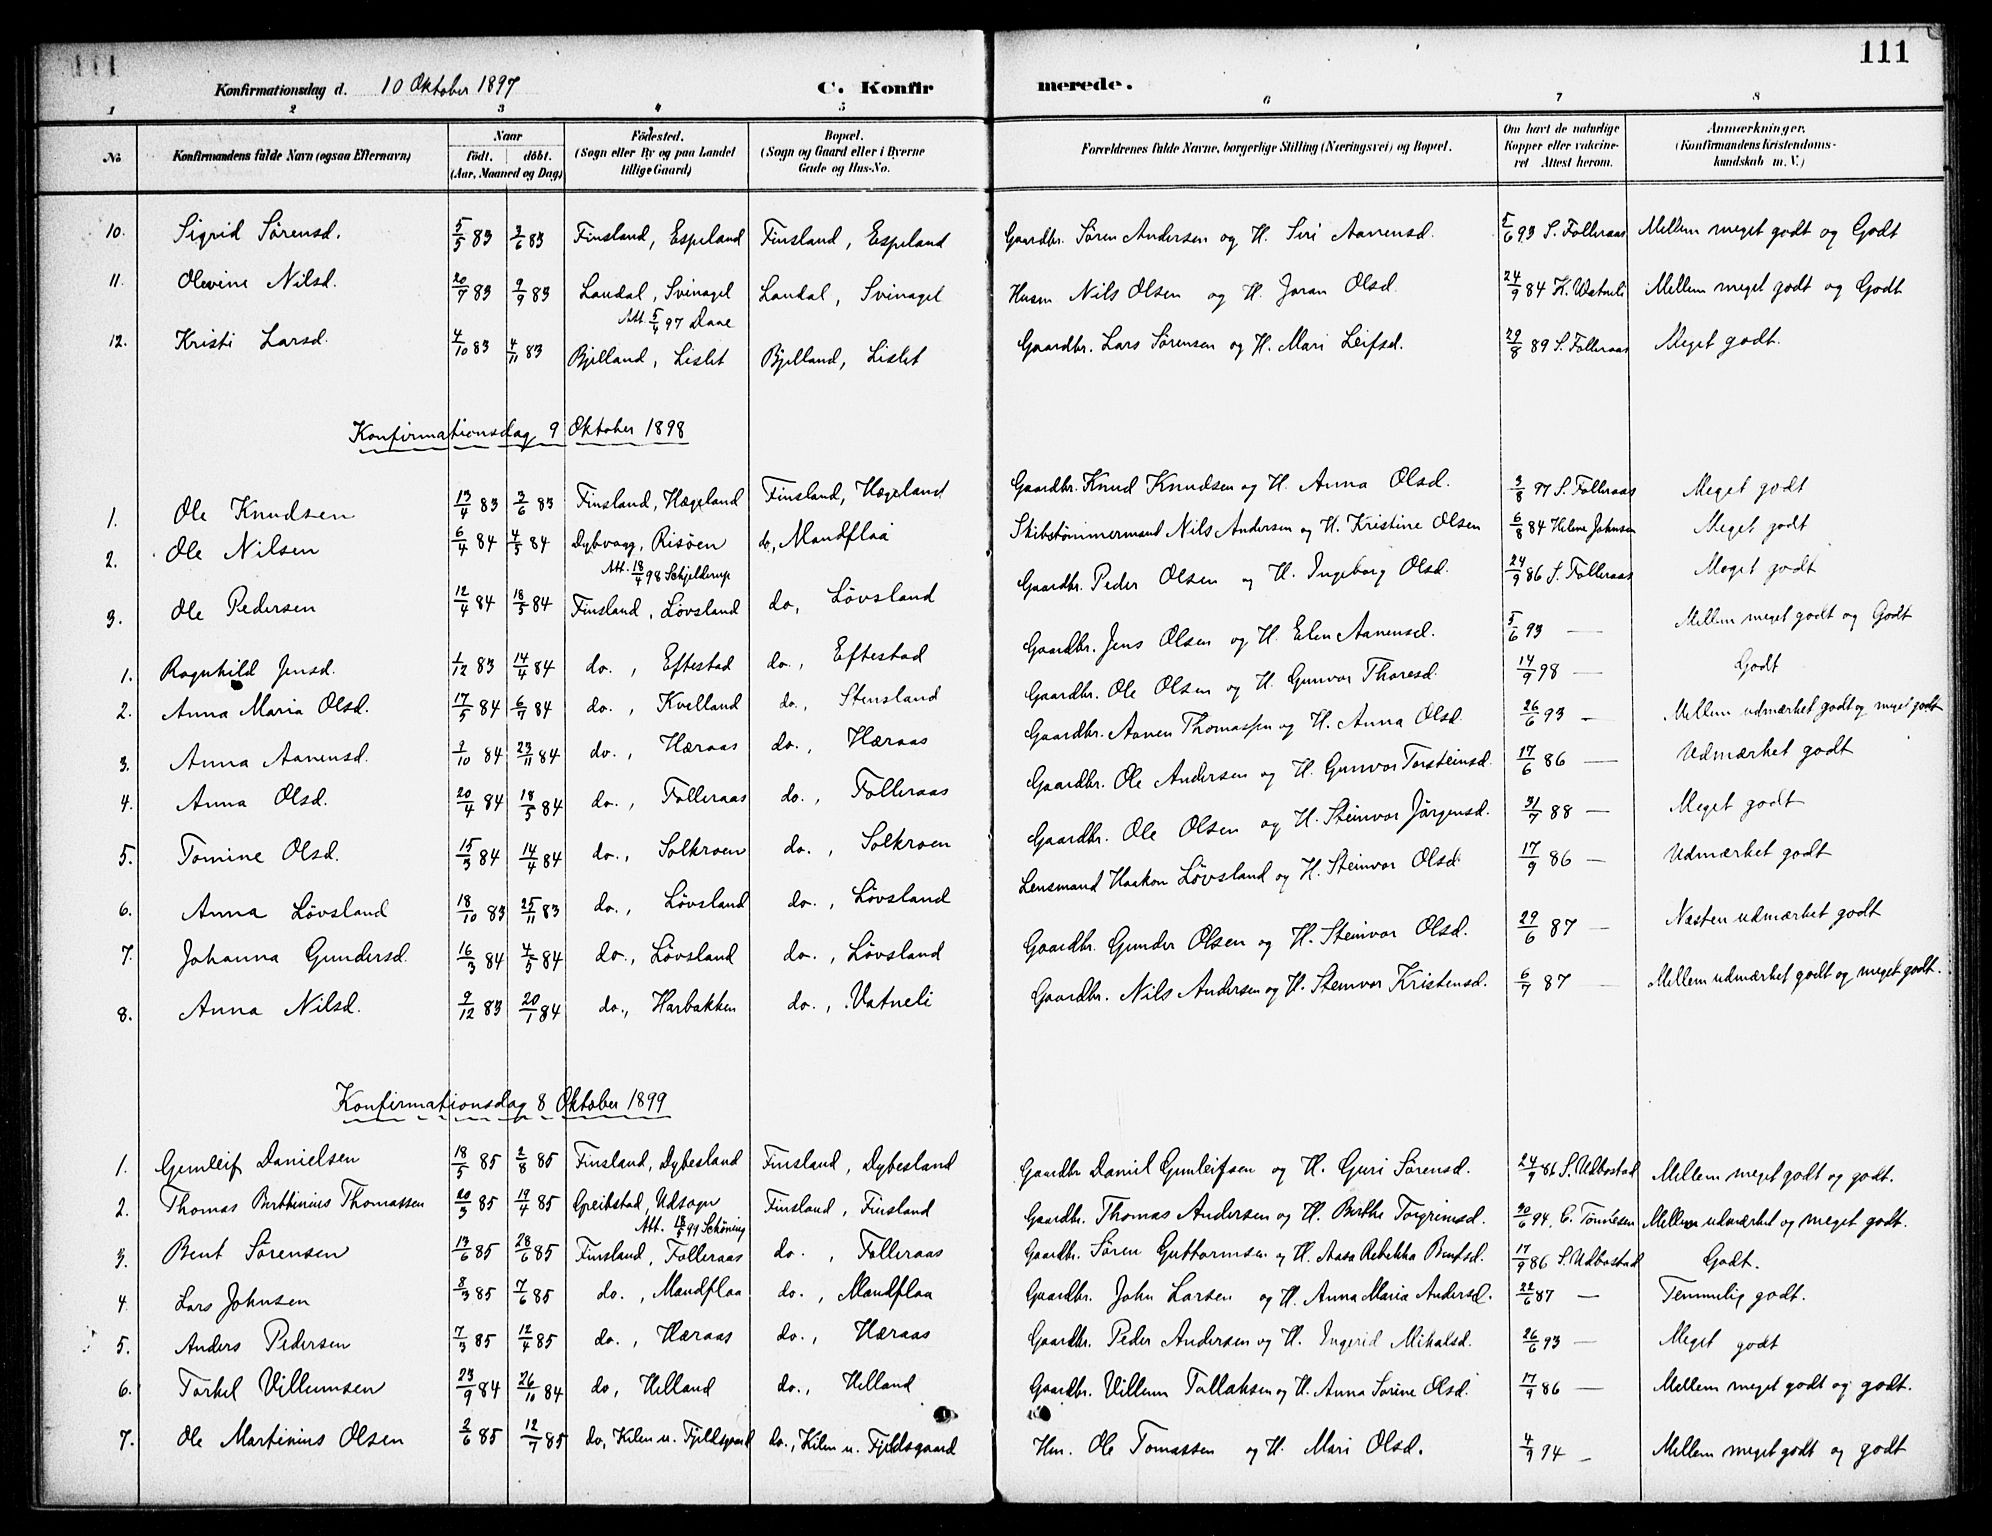 111
Konfirmationsdag d. 10 Oktober 1897 C. Konfirmerede.
1 2 3 4 5 6 7 8
No. Konfirmandens fulde Navn (ogsaa Efternavn) Naar født. døbt. (Aar, Maaned og Dag) Fødested. (Sogn eller By og paa Landet tillige Gaard) Bopæl. (Sogn og Gaard eller i Byerne Gade og Hus-No. Forældrenes fulde Navne, borgerlige Stilling (Næringsvei) og Bopæl. Om havt de naturlige Kopper eller vakcineret Attest herom. Anmærkninger. (Konfirmandens Kristendomskundskab m. V.)
10. Sigrid Sørensd. 5/5 83 3/6 83 Finsland, Espeland Finsland, Espeland Gaardbr. Søren Andersen og H. Siri Aanensd. 5/6 93 S. Folleraas Mellem meget godt og Godt
11. Olevine Nilsd. 20/7 83 9/9 83 Laudal, Svinagel Laudal, Svinagel Husm Nils Olsen og H. Joran Olsd. 24/9 84 K. Watneli Mellem meget godt og Godt
Att. 5/4 97 Daae
12. Kristi Larsd. 4/10 83 4/11 83 Bjelland, Lislet Bjelland, Lislet Gaardbr. Lars Sørensen og H. Mari Leifsd. 29/8 89 S. Folleraas Meget godt.
Konfirmationsdag 9 Oktober 1898
1. Ole Knudsen 13/4 83 3/6 83 Finsland, Hægeland Finsland, Hægeland Gaardbr. Knud Knudsen og H. Anna Olsd. 3/8 97 S. Folleraas Meget godt
2. Ole Nilsen 6/4 84 4/5 84 Dybvaag, Risøen do, Mandflaa Skibstømmermand Nils Andersen og H. Kristine Olsen 6/8 84 Helene Johnsen Meget godt
Att. 18/4 98 Schjelderup
3. Ole Pedersen 12/4 84 18/5 84 Finsland, Løvsland do, Løvsland Gaardbr. Peder Olsen og H. Ingeborg Olsd. 24/9 86 S. Folleraas Meget godt
1. Ragnhild Jensd. 1/12 83 14/4 84 do., Eftestad do., Eftestad Gaardbr. Jens Olsen og H. Elen Aanensd. 5/6 93 — Mellem meget godt og Godt
2. Anna Maria Olsd. 17/5 84 6/7 84 do., Kvelland do., Stensland Gaardbr. Ole Olsen og H. Gunvor Thoresd. 14/9 98 — Godt
3. Anna Aanensd. 9/10 84 23/11 84 do., Hæraas do., Hæraas Gaardbr. Aanen Thomassen og H. Anna Olsd. 26/6 93 — Mellem udmærket godt og meget godt
4. Anna Olsd. 20/4 84 18/5 84 do., Folleraas do., Folleraas Gaardbr. Ole Andersen og H. Gunvor Torsteinsd. 17/6 86 — Udmærket godt
5. Tomine Olsd. 15/3 84 14/4 84 do., Solkroen do., Solkroen Gaardbr. Ole Olsen og H. Steinvor Jörgensd. 31/7 88 — Meget godt
6. Anna Lövsland 18/10 83 25/11 83 do., Lövsland do., Lövsland Lensmand Haakon Lövsland og H. Steinvor Olsd. 17/9 86 — Udmærket godt
7. Johanna Gundersd. 16/3 84 4/5 84 do., Lövsland do., Lövsland Gaardbr. Gunder Olsen og H. Steinvor Olsd. 29/6 87 — Næsten udmærket godt
8. Anna Nilsd. 9/12 83 20/1 84 do., Harbakken do., Vatneli Gaardbr. Nils Andersen og H. Steinvor Kristensd. 6/7 87 — Mellem udmærket godt og meget godt.
Konfirmationsdag 8 Oktober 1899
1. Gunleif Danielsen 18/5 85 2/8 85 Finsland, Dybesland Finsland, Dybesland Gaardbr Daniel Gunleifsen og H. Guri Sørensd. 24/9 86 S. Udbostad Mellem meget godt og godt.
2. Thomas Berthinius Thomassen 20/3 85 19/4 85 Greibstad, Udsogn Finsland, Finsland Gaardbr. Thomas Andersen og H. Berthe Torgrimsd. 30/6 94, C. Tønnesen Mellem udmærket og meget godt.
Att. 18/5 99 Schöning
3. Bent Sørensen 13/6 85 28/6 85 Finsland, Folleraas do., Folleraas Gaardbr. Søren Guttormsen og H. Aasa Rebekka Bentsd. 17/9 86 S. Udbostad Godt.
4. Lars Johnsen 8/3 85 7/6 85 do., Mandflaa do., Mandflaa Gaardbr. John Larsen og H. Anna Maria Andersd. 22/6 87 — Temmelig godt.
5. Anders Pedersen 7/3 85 12/4 85 do., Hæraas do., Hæraas Gaardbr. Peder Andersen og H. Ingerid Mikalsd. 26/6 93 — Meget godt
6. Torkel Villumsen 23/9 84 26/10 84 do, Helland do., Helland Gaardbr. Villum Tallaksen og H. Anna Sorine Olsd. 17/9 86 — Mellem meget godt og godt.
7. Ole Martinius Olsen 2/6 85 12/7 85 do, Kilen u. Fjeldsgaard do., Kilen u. Fjeldsgaard Hm. Ole Tomassen og H. Mari Olsd. 4/9 94 — Mellem meget godt og godt